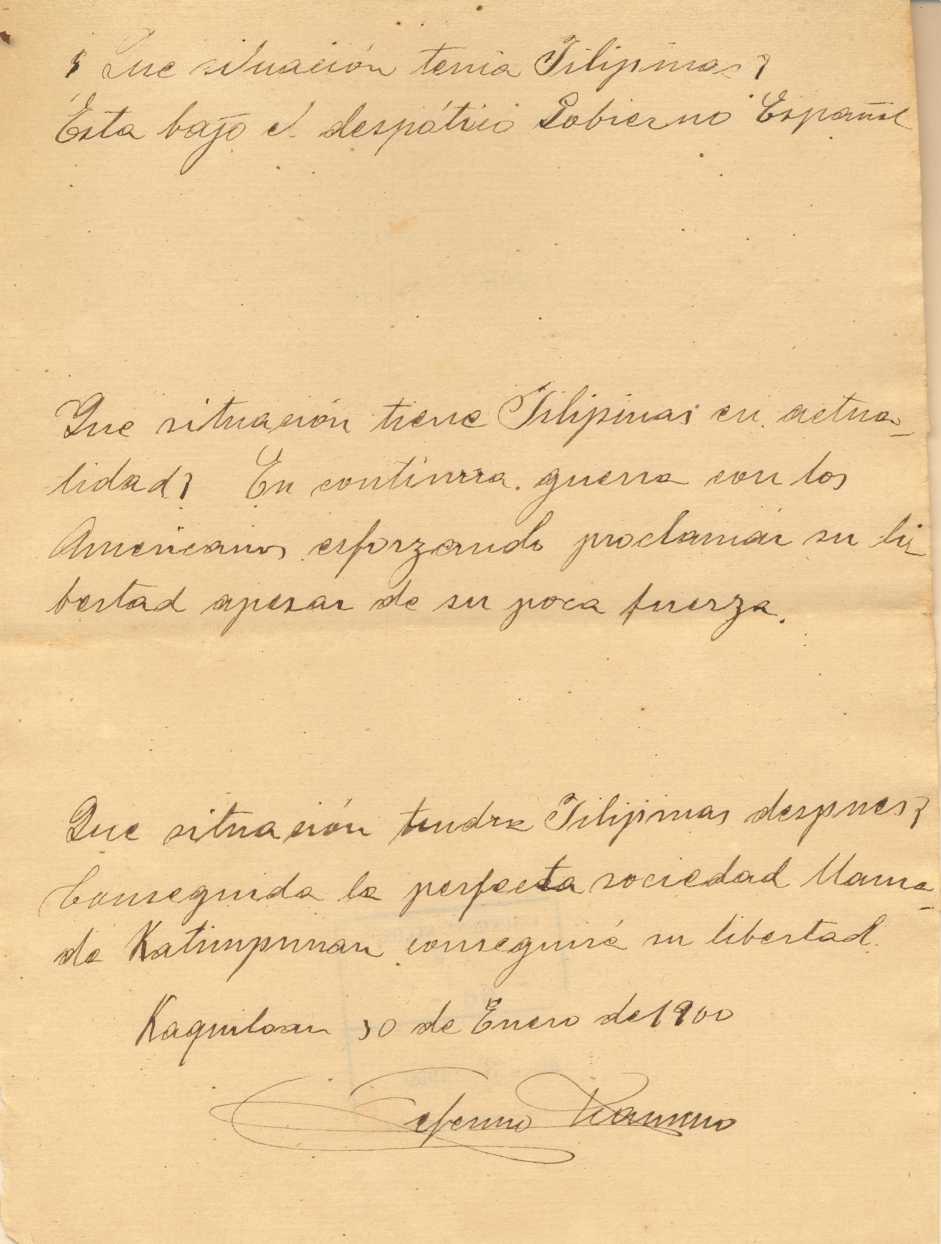 ¿Que situación tenia Filipinas?
Esta bajo el despótico Gobierno Español
Que situación tiene Filipinas en actua-
lidad? En continua guerra con los
Americanos esforzando proclamar su li-
bertad apesar de su poca fuerza.
Que situación tendra Filipinas despues?
Conseguida la perfecta sociedad llama-
da Katimpunan conseguirá su libertad.
30 de Enero de 1900